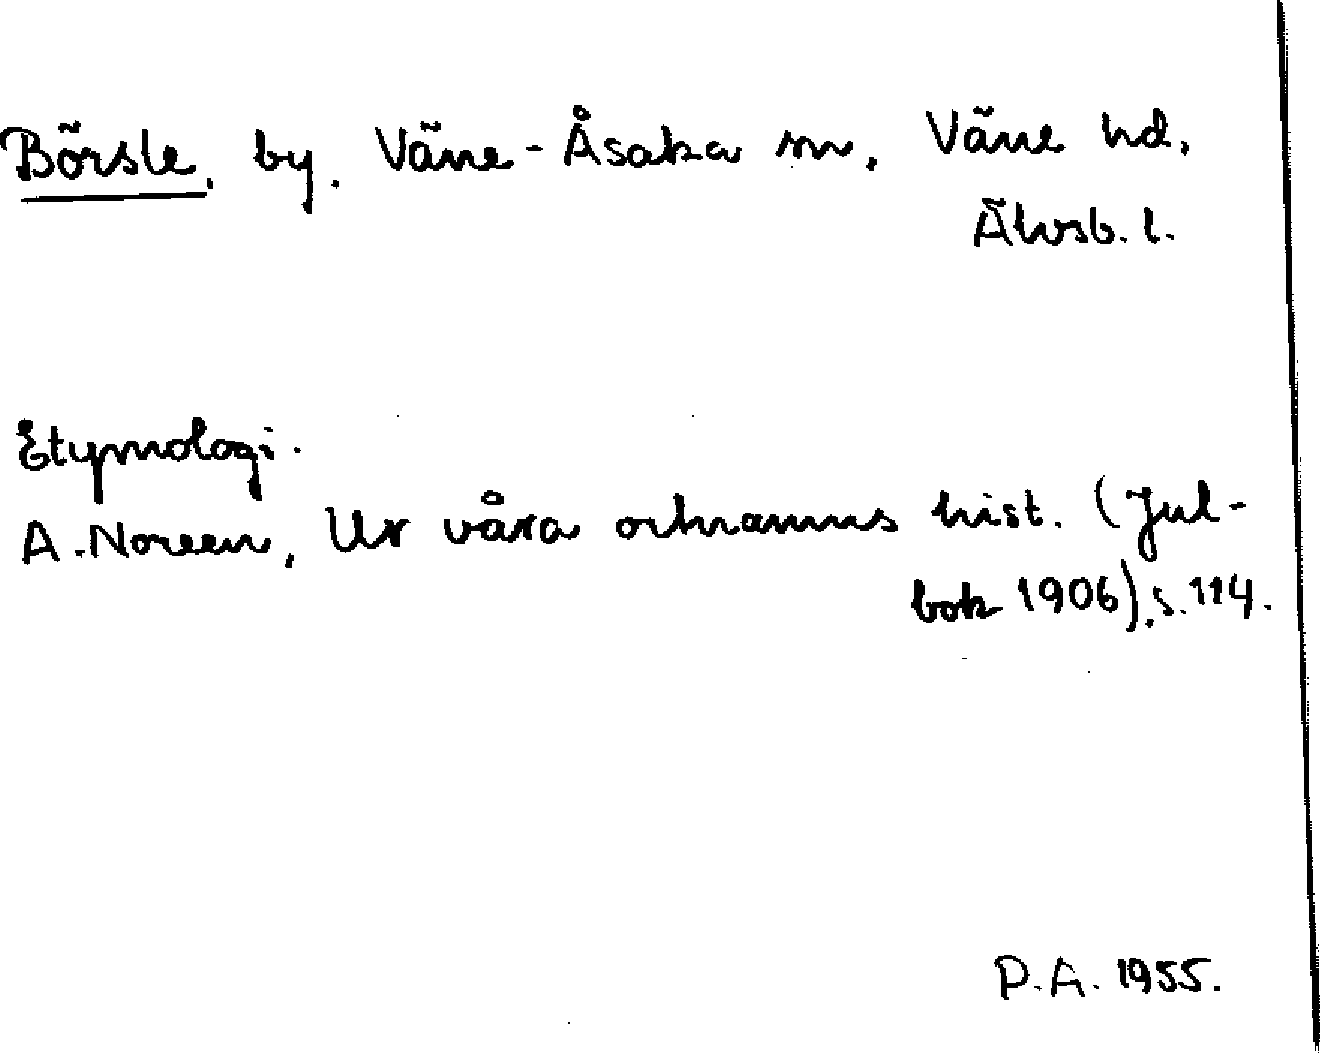 Börsle, by. Väne-Åsaka sn, Väne hd,
Älvsb. l.
Etymologi.
A. Noreen, Ur våra ortnamns hist. (Jul-
bok 1906), s. 114.
P.A. 1955.